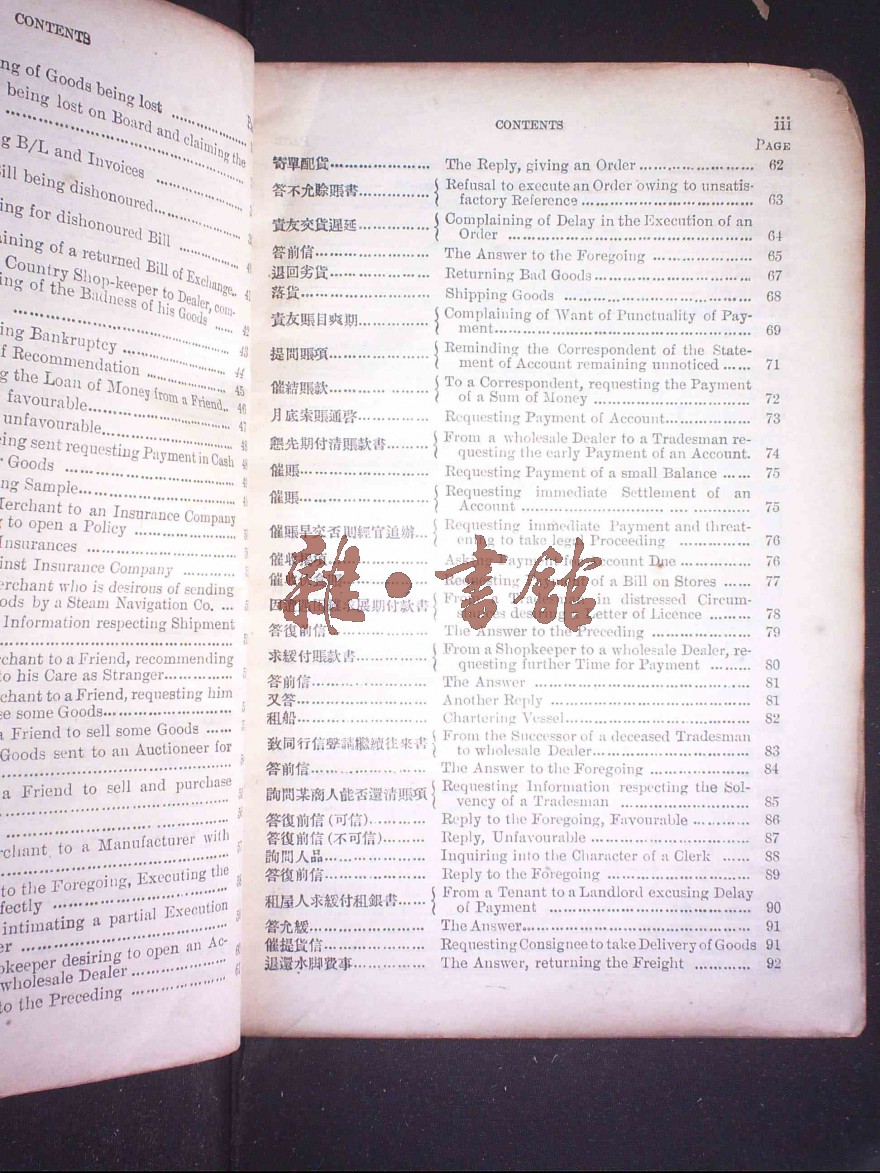 CONTENTS
ng of Goods being lost
being lost on Board and claiming the
g B/L and Invoices
ill being dishonoured
ing for dishonoured Bill
ining of a returned Bill of Exchange.. 41
Country Shop-keeper to Dealer, com-
ng of the Badness of his Goods ...... 42
ing Bankruptcy ........ 43
f Recommendation ........ 44
g the Loan of Money from a Friend.. 45
favourable........ 46
unfavourable........ 47
eing sent requesting Payment in Cash
r Goods
ng Sample
Merchant to an Insurance Company
g to open a Policy
Insurances
inst Insurance Company
erchant who is desirous of sending
ods by a Steam Navigation Co. ...
Information respecting Shipment
rchant to a Friend, recommending
to his Care as Stranger
chant to a Friend, requesting him
se some Goods
a Friend to sell some Goods ......
Goods sent to an Auctioneer for
a Friend to sell and purchase
rchant to a Manufacturer with
to the Foregoing, Executing the
fectly
intimating a partial Execution
er
pkeeper desiring to open an Ac-
wholesale Dealer
to the Preceding
CONTENTS iii
PAGE
寄單配貨........ The Reply, giving an Order ........ 62
答不允賒賬書........ { Refusal to execute an Order owing to unsatis-
factory Reference ........ 63
責友交貨遲延........ { Complaining of Delay in the Execution of an
Order ........ 64
答前信........ The Answer to the Foregoing ........ 65
退回劣貨........ Returning Bad Goods ........ 67
落貨........ Shipping Goods ........ 68
責友賬目爽期........ { Complaining of Want of Punctuality of Pay-
ment........ 69
提問賬項........ { Reminding the Correspondent of the State-
ment of Account remaining unnoticed ...... 71
催結賬款........ { To a Correspondent, requesting the Payment
of a Sum of Money ........ 72
月底索賬通啓........ Requesting Payment of Account........ 73
懇先期付清賬款書........ { From a wholesale Dealer to a Tradesman re-
questing the early Payment of an Account. 74
催賬........ Requesting Payment of a small Balance ...... 75
催賬........ { Requesting immediate Settlement of an
Account ........ 75
催賬早交否則經官追辦... { Requesting immediate Payment and threat-
ening to take legal Proceeding ........ 76
Asking Payment for Account Due ........ 76
Requesting Payment of a Bill on Stores ... 77
展期付款書 { From a Tradesman in distressed Circum-
stances desiring a Letter of Licence ...... 78
答復前信........ The Answer to the Preceding ........ 79
求緩付賬款書........ { From a Shopkeeper to a wholesale Dealer, re-
questing further Time for Payment ...... 80
答前信........ The Answer ........ 81
又答........ Another Reply ........ 81
租船........ Chartering Vessel........ 82
致同行信聲請繼續往來書 { From the Successor of a deceased Tradesman
to wholesale Dealer........ 83
答前信........ The Answer to the Foregoing ........ 84
詢問某商人能否還清賬項 { Requesting Information respecting the Sol-
vency of a Tradesman ........ 85
答復前信(可信)........ Reply to the Foregoing, Favourable ........ 86
答復前信(不可信)........ Reply, Unfavourable ........ 87
詢問人品........ Inquiring into the Character of a Clerk ...... 88
答復前信........ Reply to the Foregoing ........ 89
租屋人求緩付租銀書...... { From a Tenant to a Landlord excusing Delay
of Payment ........ 90
答允緩........ The Answer........ 91
催提貨信........ Requesting Consignee to take Delivery of Goods 91
退還水脚費事........ The Answer, returning the Freight ........ 92
雜·書館